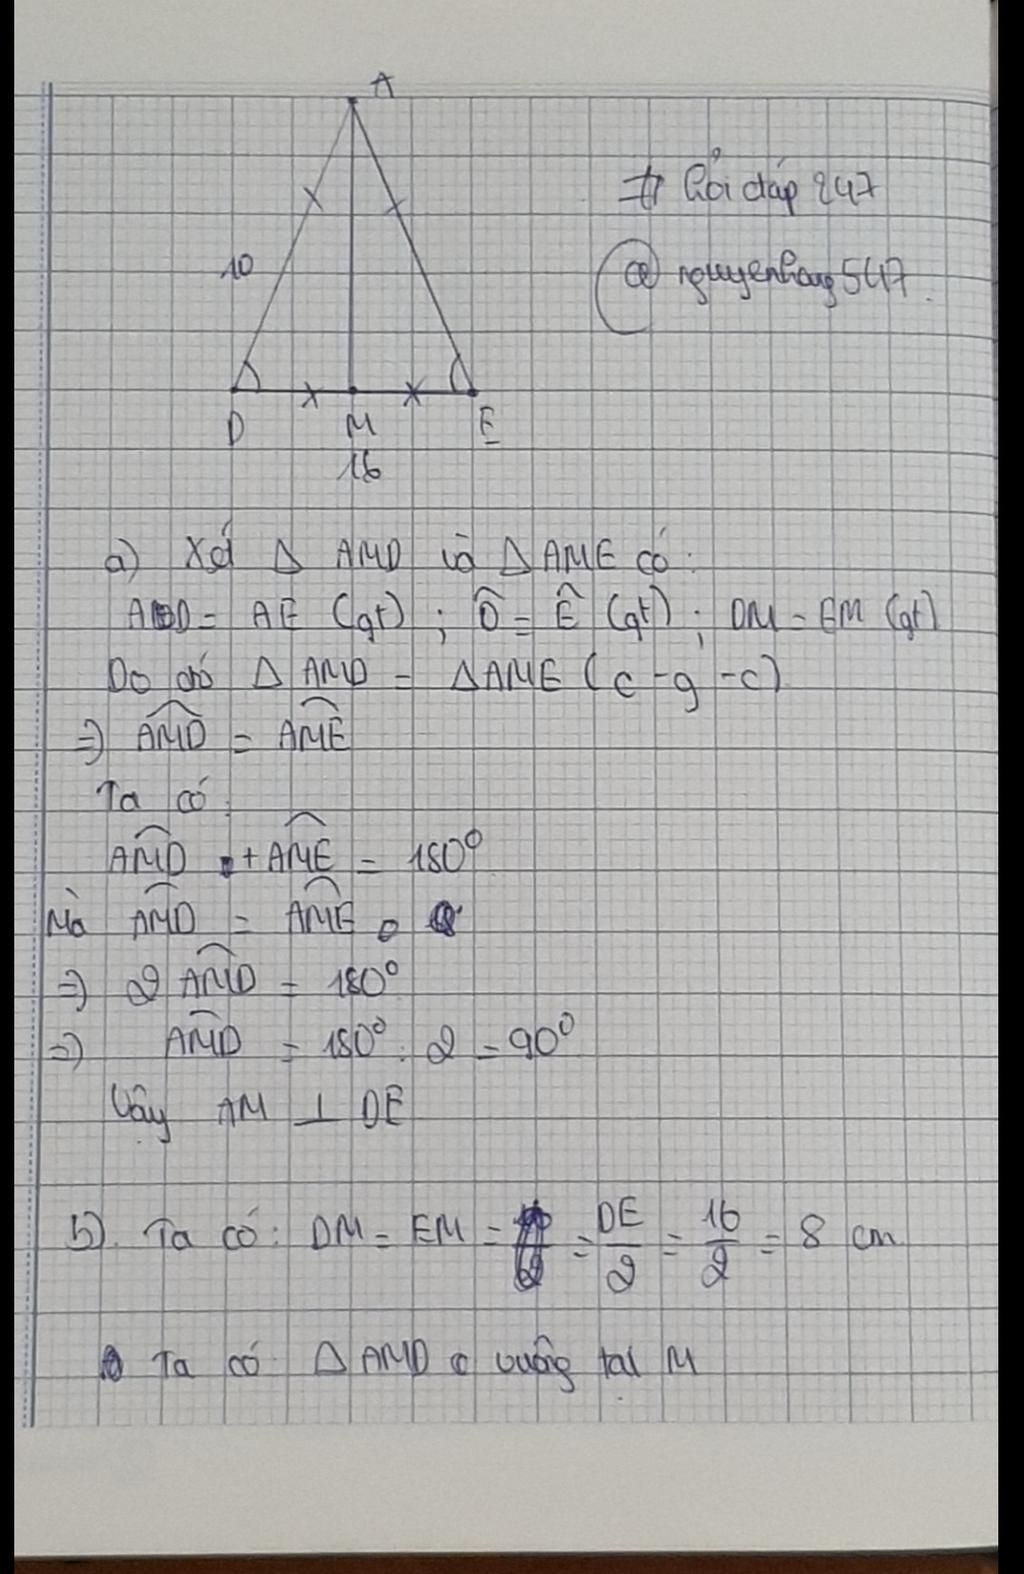 A
# hỏi đáp 247
10
@ nguyenhang547.
D M E
16
a) Xét Δ AMD và Δ AME có:
AD = AE (gt) ; D̂ = Ê (gt) ; DM = EM (gt)
Do đó Δ AMD = ΔAME (c-g-c)
=> \widehat{AMD} = \widehat{AME}
Ta có:
\widehat{AMD} + \widehat{AME} = 180°
Mà \widehat{AMD} = \widehat{AME}
=> 2 \widehat{AMD} = 180°
=> \widehat{AMD} = 180° : 2 = 90°
Vậy AM ⊥ DE
b). Ta có: DM = EM = = DE/2 = 16/2 = 8 cm
Ta có Δ AMD vuông tại M